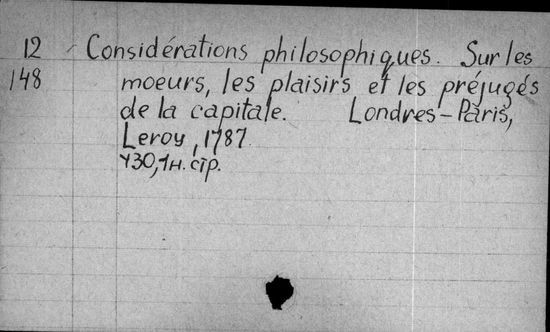 12 Considérations philosophiques. Sur les
148 moeurs, les plaisirs et les préjugés
de la capitale. Londres-Paris,
Leroy, 1787.
430,1н. стр.